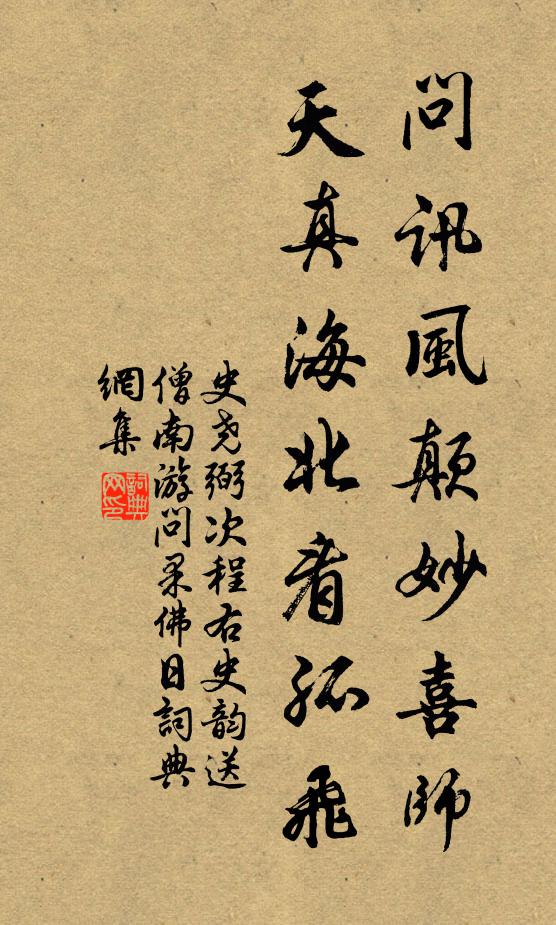 問訊風顛妙喜師
天真海北看孤飛
史尧弼次程右史韵送
僧南游问杲佛日詞典
網集
詞典網印